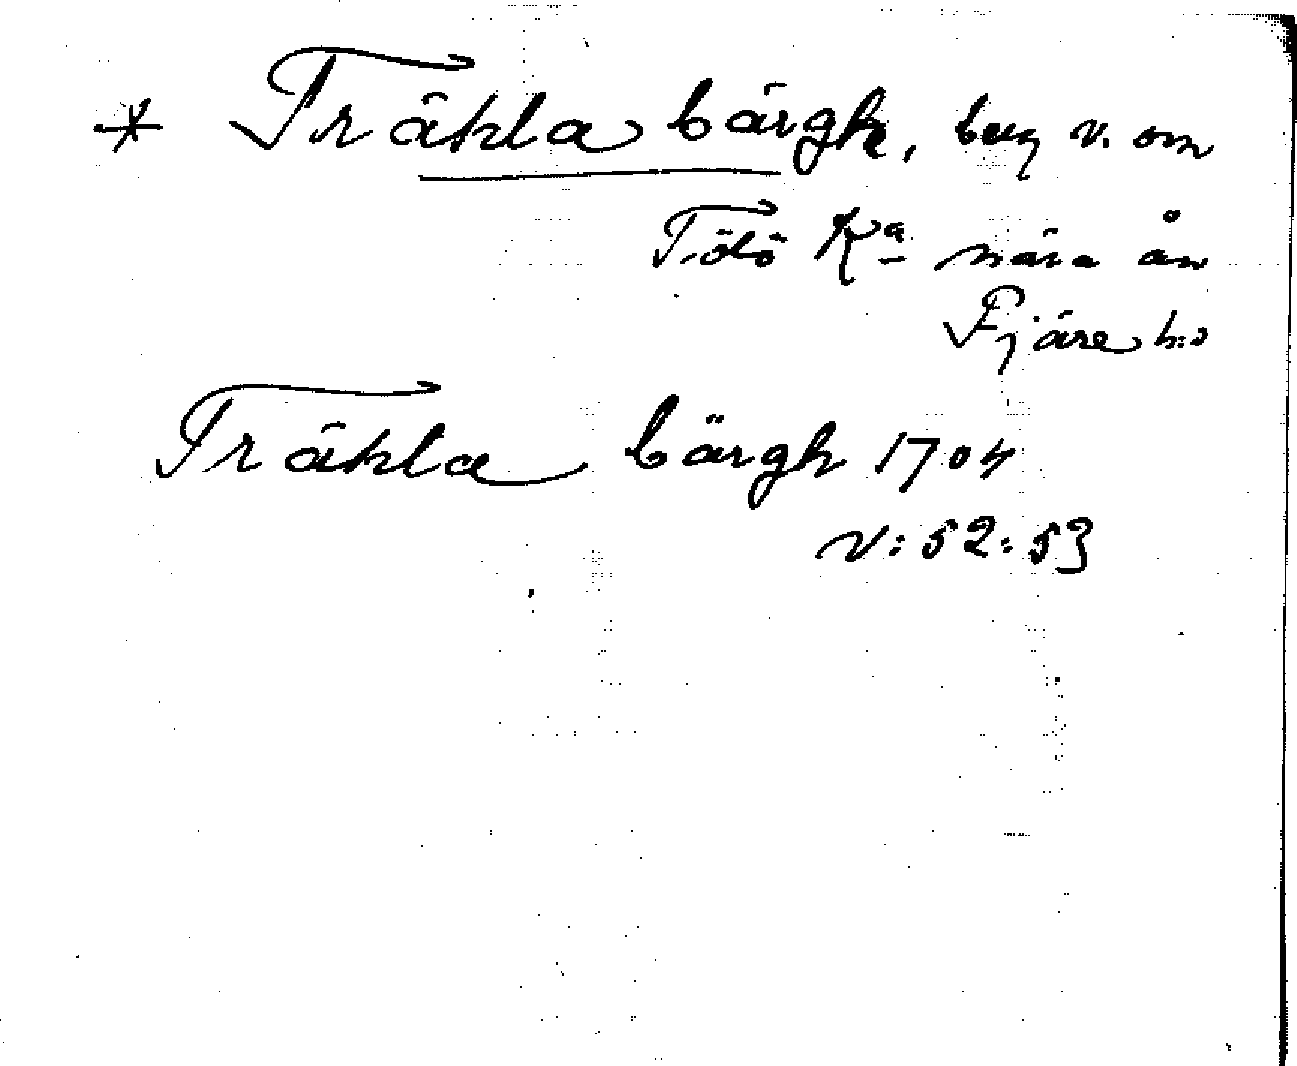 * Träkla bärgh, berg v. om
Tölö Ka nära ån
Fjäre hd
Träkla bärgh 1704
V: 52: 53